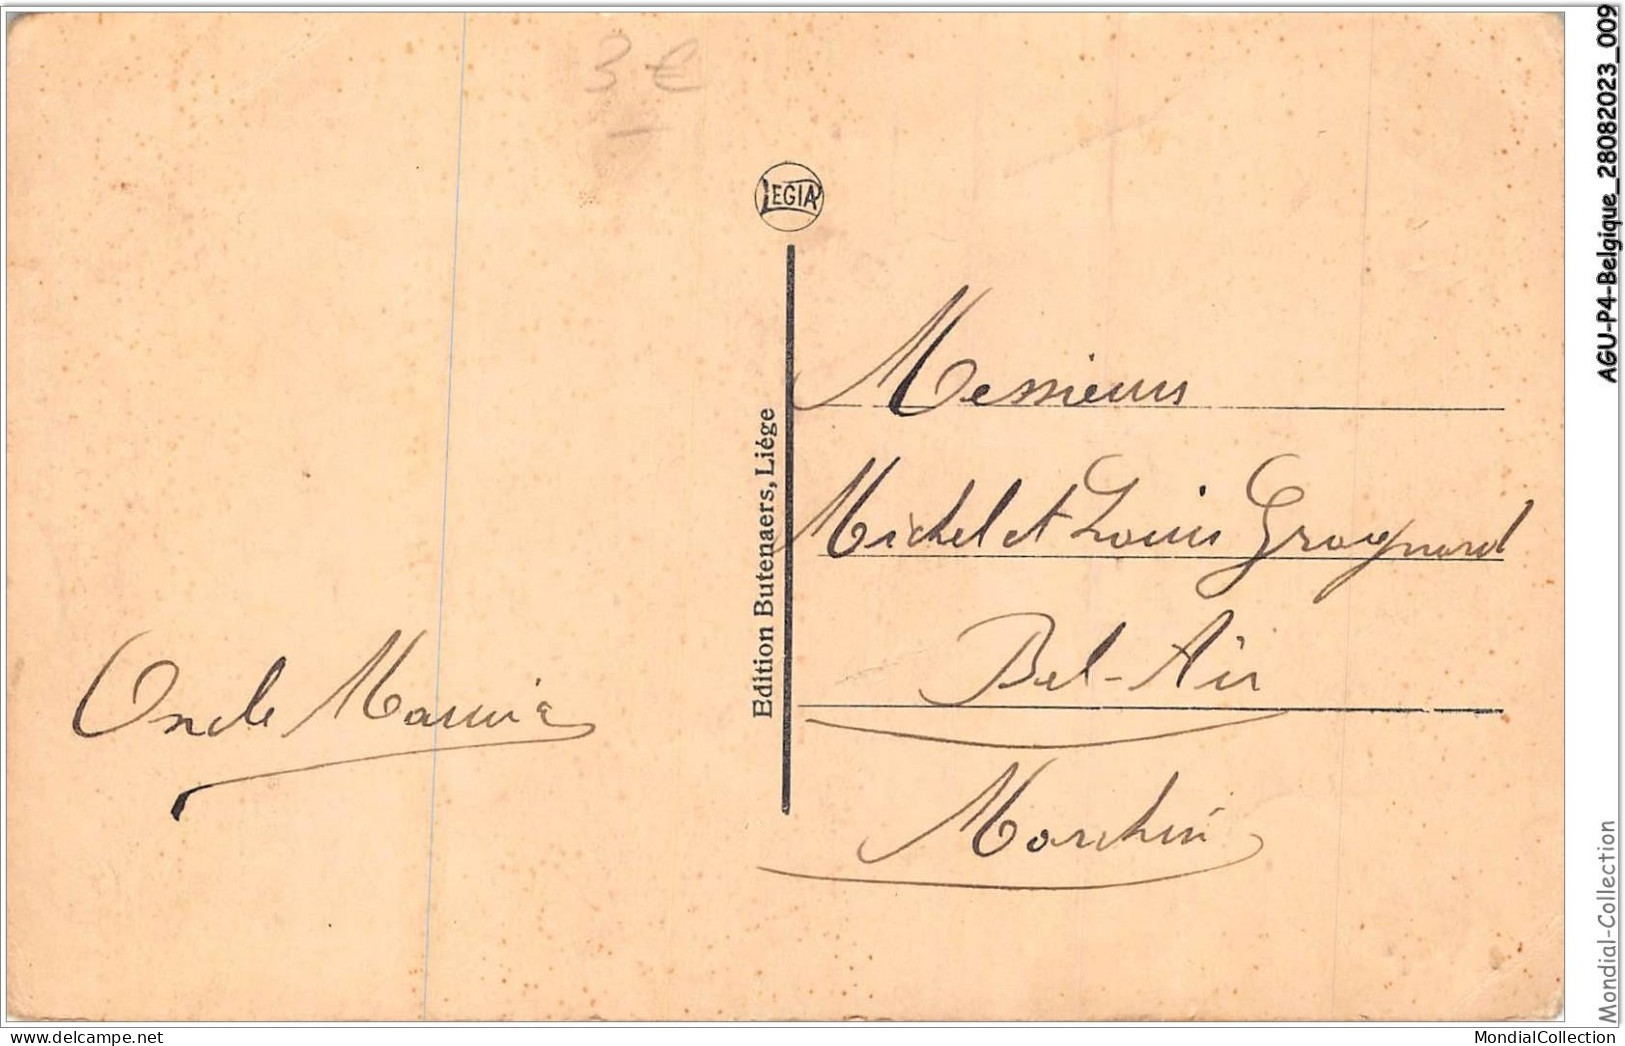 3 €
LEGIA
Edition Butenaers, Liége
Messieurs
Michel et Louis Grognard
Bel-Air
Marchin
Oncle
AGU-P4-Belgique_28082023_009
Mondial-Collection
www.delcampe.net
MondialCollection